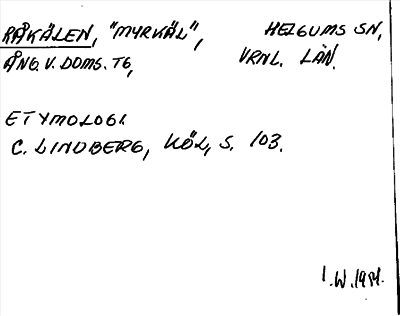 RÅKÄLEN, "MYRKÄL", HELGUMS SN,
ÅNG. V. DOMS. TG, VRNL. LÄN.
ETYMOLOGI.
C. LINDBERG, KÖL, S. 103.
I.W.1981.